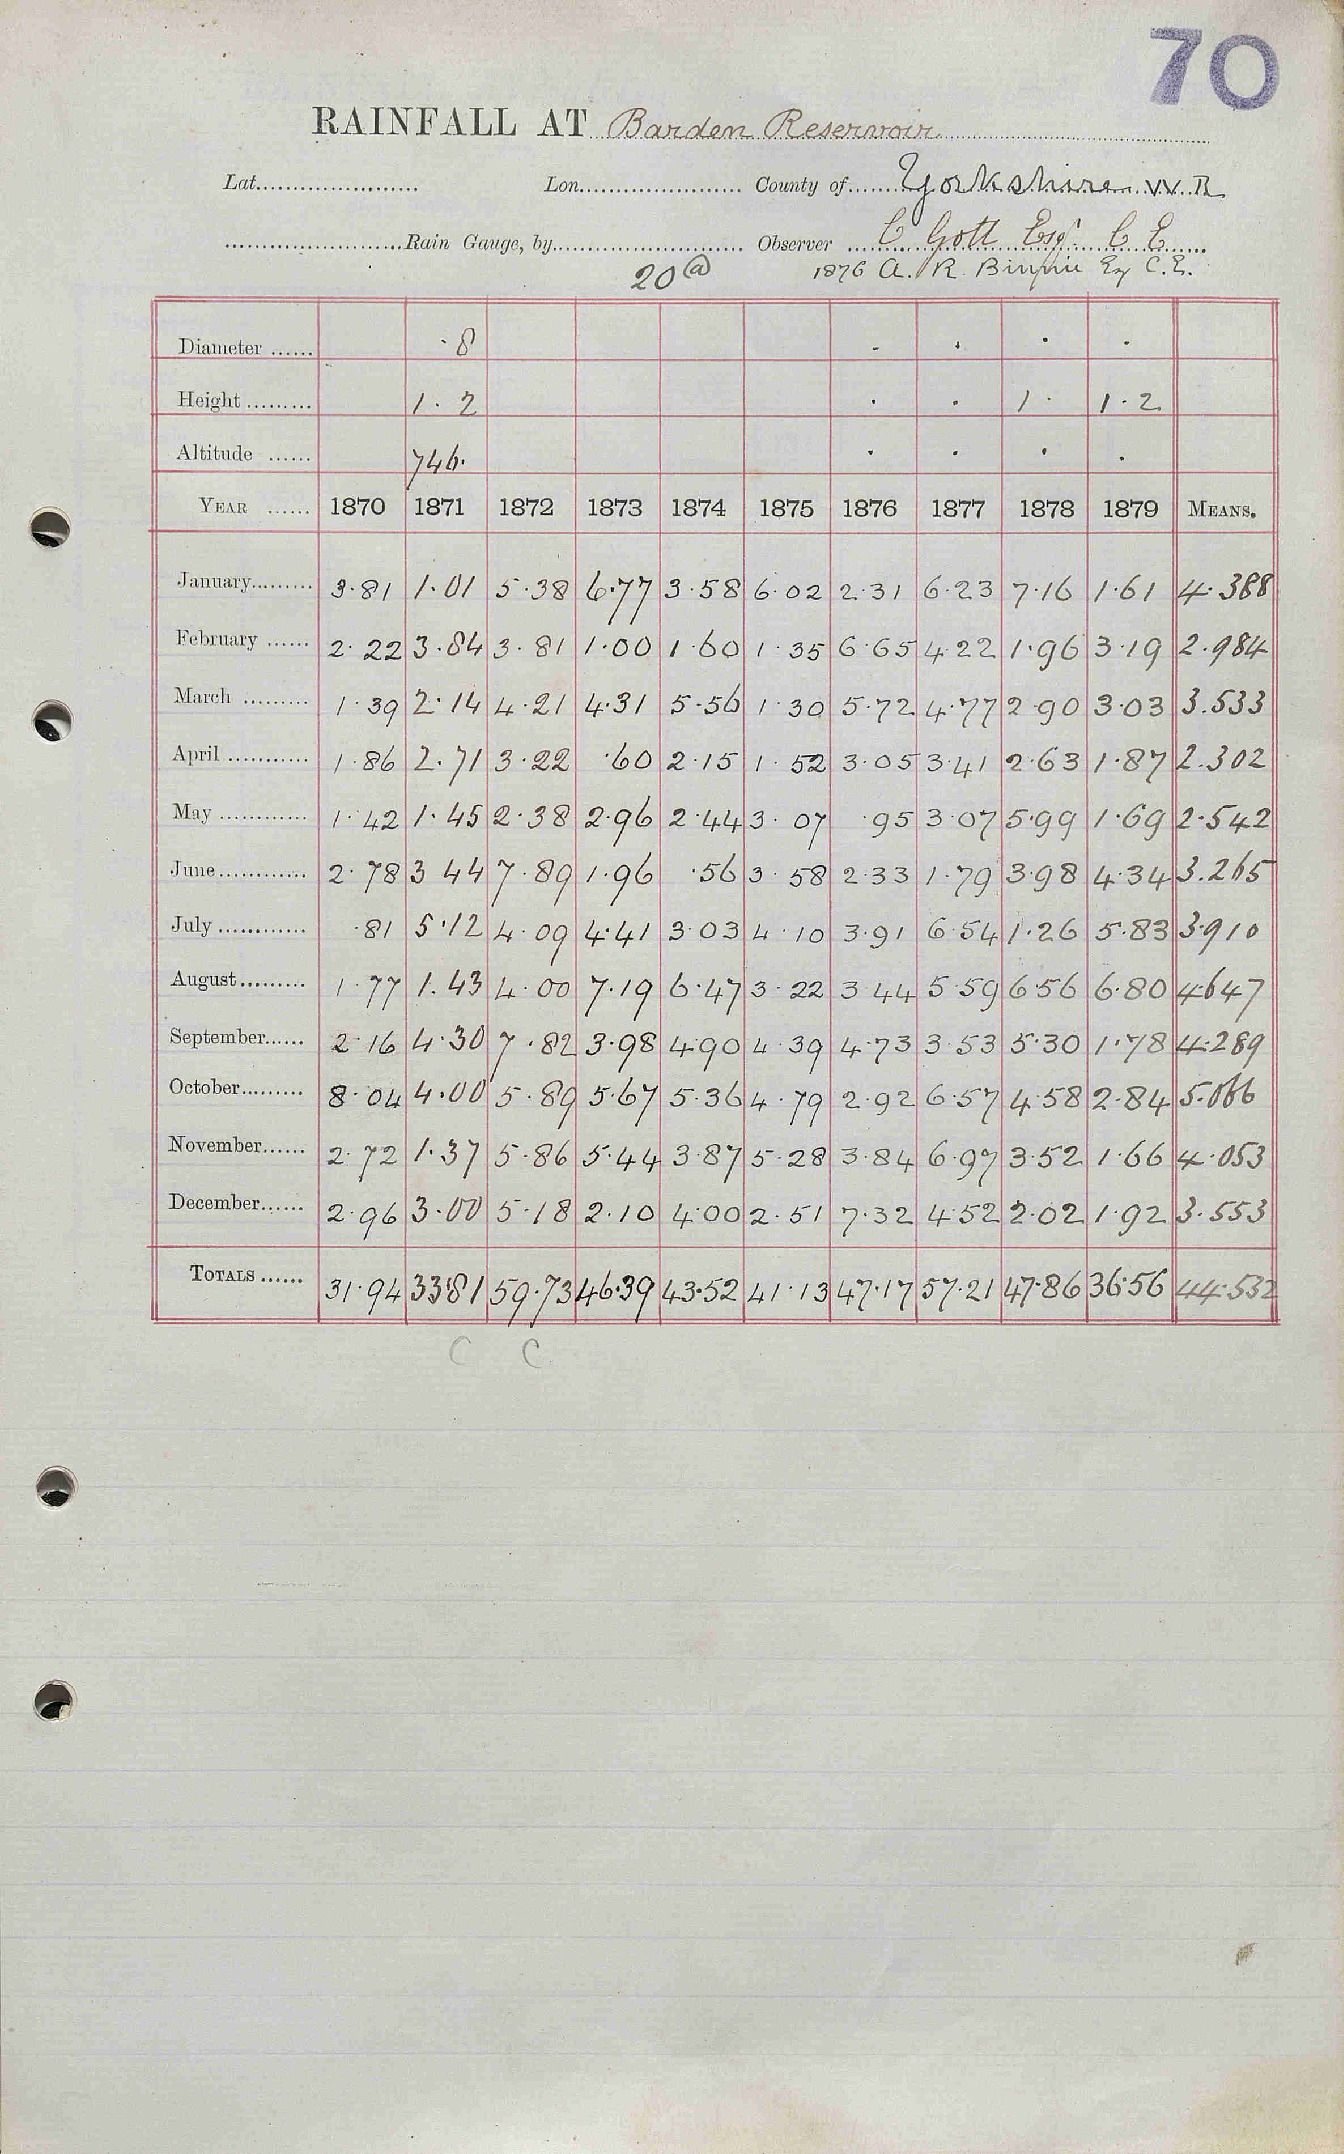 70
RAINFALL AT Barden Reservoir
Lat...................... Lon...................... County of...... Yorkshire W.R
........................Rain Gauge, by.......................... Observer ...C Gott Esqr. C E
20@ 1876 A. R. Binnie Esq C.E.
Diameter ...... ·8 - · · ·
Height ......... 1·2 · · 1· 1·2
Altitude ...... 746. · · · ·
YEAR ...... 1870 1871 1872 1873 1874 1875 1876 1877 1878 1879 MEANS.
January......... 3·81 1·01 5·38 6·77 3·58 6·02 2·31 6·23 7·16 1·61 4·388
February ...... 2·22 3·84 3·81 1·00 1·60 1·35 6·65 4·22 1·96 3·19 2·984
March ......... 1·39 2·14 4·21 4·31 5·56 1·30 5·72 4·77 2·90 3·03 3.533
April ........... 1·86 2·71 3·22 ·60 2·15 1·52 3·05 3·41 2·63 1·87 2.302
May ............ 1·42 1·45 2·38 2·96 2·44 3·07 ·95 3·07 5·99 1·69 2·542
June............ 2·78 3 44 7·89 1·96 ·56 3·58 2·33 1·79 3·98 4·34 3.265
July ............ ·81 5·12 4·09 4·41 3·03 4·10 3·91 6·54 1·26 5·83 3·910
August......... 1·77 1.43 4·00 7·19 6·47 3·22 3·44 5·59 6·56 6·80 4·647
September...... 2·16 4·30 7·82 3·98 4·90 4·39 4·73 3·53 5·30 1·78 4·289
October......... 8·04 4·00 5·89 5·67 5·36 4·79 2·92 6·57 4·58 2·84 5·066
November...... 2·72 1·37 5·86 5·44 3·87 5·28 3·84 6·97 3·52 1·66 4·053
December...... 2·96 3·00 5·18 2·10 4·00 2·51 7·32 4·52 2·02 1·92 3·553
TOTALS ...... 31·94 33·81 59·73 46·39 43·52 41·13 47·17 57·21 47·86 36·56 44·532
C C